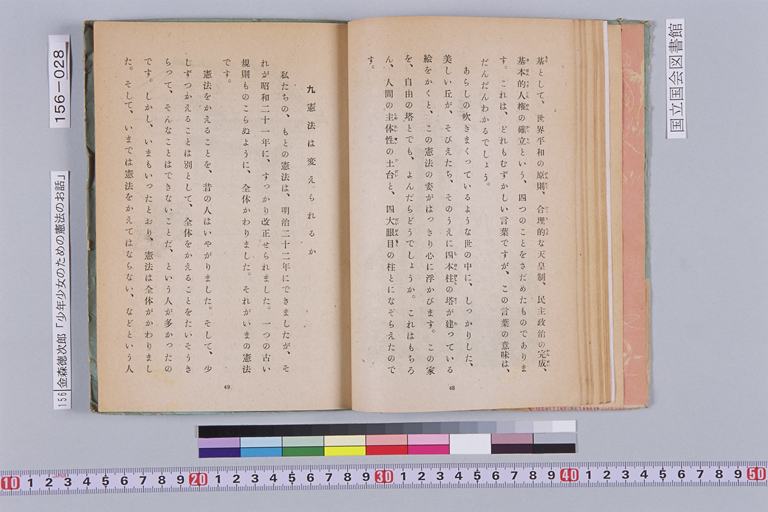 基として、世界平和の原則、合理的な天皇制、民主政治の完成、
基本的人権の確立という、四つのことをさだめたものでありま
す。これは、どれもむずかしい言葉ですが、この言葉の意味は、
だんだんわかるでしょう。
あらしの吹きまくっているような世の中に、しっかりした、
美しい丘が、そびえたち、そのうえに四本柱の塔が建っている
絵をかくと、この憲法の姿がはっきり心に浮かびます。この家
を、自由の塔とでも、よんだらどうでしょうか。これはもちろ
ん、人間の主体性の土台と、四大眼目の柱とになぞらえたので
す。
48
九 憲法は変えられるか
私たちの、もとの憲法は、明治二十二年にできましたが、そ
れが昭和二十一年に、すっかり改正せられました。一つの古い
規則ものこらぬように、全体かわりました。それがいまの憲法
です。
憲法をかえることを、昔の人はいやがりました。そして、少
しずつかえることは別として、全体をかえることをたいそうき
らって、そんなことはできないことだ、という人が多かったの
です。しかし、いまもいったとおり、憲法は全体がかわりまし
た。そして、いまでは憲法をかえてはならない、などという人
49
156-028
156 金森徳次郎「少年少女のための憲法のお話」
国立国会図書館
10 1 2 3 4 5 6 7 8 9 20 1 2 3 4 5 6 7 8 9 30 1 2 3 4 5 6 7 8 9 40 1 2 3 4 5 6 7 8 9 50